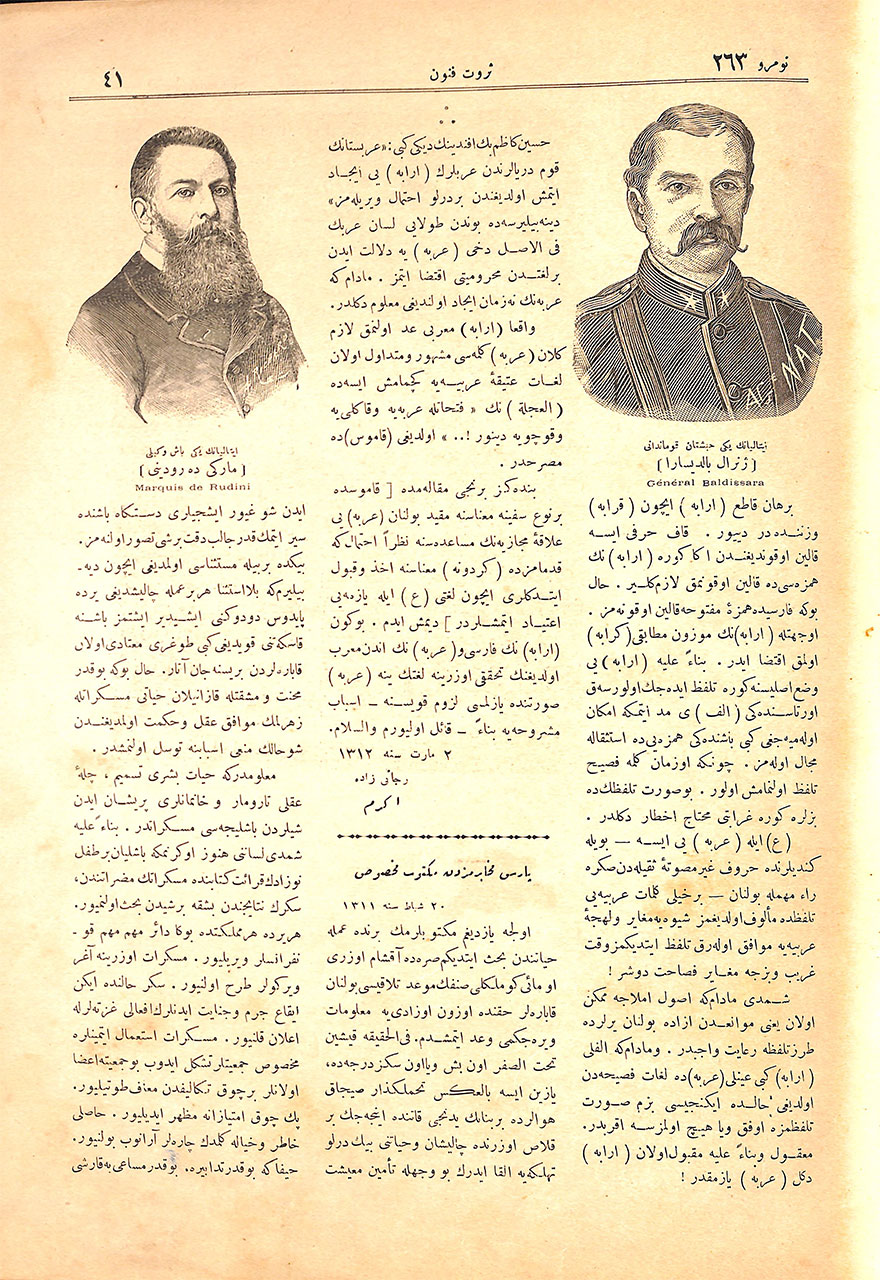 نومرو ٢٦٣
ثروت فنون
٤١
ایتالیانك یکی حبشتان قوماندانی
( ژنرال بالدیسارا )
Général Baldissara
برهان قاطع ( ارابه ) ایچون ( قرابه )
وزننده در دییور . قاف حرفی ایسه
قالین اوقوندیغندن اکا کوره ( ارابه ) نك
همزه‌سی ده قالین اوقونمق لازم کلیر . حال
بوکه فارسیده همزهٔ مفتوحه قالین اوقونه‌مز .
اوجهتله ( ارابه ) نك موزون مطابقی ( کرابه )
اولمق اقتضا ایدر . بناءً علیه ( ارابه ) یی
وضع اصلیسنه کوره تلفظ ایده‌جك اولورسه‌ق
اورتاسنده‌کی ( الف ) ی مد ایتمکه امکان
اوله‌میه‌جغی کبی باشنده‌کی همزه‌یی ده استثقاله
مجال اوله‌مز . چونکه اوزمان کلمه فصیح
تلفظ اولنمامش اولور . بوصورت تلفظك ده
بزلره کوره غرابتی محتاج اخطار دکلدر .
( ع ) ایله ( عربه ) یی ایسه — بویله
کندیلرنده حروف غیر مصوتهٔ ثقیله‌دن صکره
راء مهمله بولنان — برخیلی کلمات عربیه‌یی
تلفظده مألوف اولدیغمز شیوه‌یه مغایر ولهجهٔ
عربیه‌یه موافق اوله‌رق تلفظ ایتدیکمز وقت
غریب وبزجه مغایر فصاحت دوشر !
شمدی مادام که اصول املاجه ممکن
اولان یعنی موانعدن ازاده بولنان یرلرده
طرز تلفظه رعایت واجبدر . ومادام که الفلی
( ارابه ) کبی عینلی ( عربه ) ده لغات فصیحه‌دن
اولدیغی حالده ایکنجیسی بزم صورت
تلفظمزه اوفق ویا هیچ اولمزسه اقربدر .
معقول وبناءً علیه مقبول اولان ( ارابه )
دکل ( عربه ) یازمقدر !
حسین کاظم بك افندینك دیدیکی کبی : « عربستانك
قوم دریالرندن عربلرك ( ارابه ) یی ایجاد
ایتمش اولدیغندن بردرلو احتمال ویریله‌مز »
دینه‌بیلیرسه‌ده بوندن طولایی لسان عربك
فی الاصل دخی ( عربه ) یه دلالت ایدن
برلغتدن محرومیتی اقتضا ایتمز . مادام که
عربه‌نك نه زمان ایجاد اولندیغی معلوم دکلدر .
واقعا ( ارابه ) معربی عد اولنمق لازم
کلان ( عربه ) کلمه‌سی مشهور ومتداول اولان
لغات عتیقهٔ عربیه‌یه کچمامش ایسه‌ده
( العجلة ) نك « فتحاتله عربه‌یه وقاکلی‌یه
وقوچویه دینور !.. » اولدیغی ( قاموس ) ده
مصرحدر .
بنده‌کز برنجی مقاله‌مده [ قاموسده
برنوع سفینه معناسنه مقید بولنان ( عربه ) یی
علاقهٔ مجازیه‌نك مساعده‌سنه نظراً احتمال که
قدمامزده ( کردونه ) معناسنه اخذ وقبول
ایتدکلری ایچون لغتی ( ع ) ایله یازمه‌یی
اعتیاد ایتمشلردر ] دیمش ایدم . بوکون
( ارابه ) نك فارسی و ( عربه ) نك اندن معرب
اولدیغنك تحققی اوزرینه لغتك ینه ( عربه )
صورتنده یازلمسی لزوم قویسنه — اسباب
مشروحه‌یه بناءً — قائل اولیورم والسلام .
٢ مارت سنه ١٣١٢
رجائی زاده
اکرم
پارس مخابرمزدن مکتوب مخصوص
٢٠ شباط سنه ١٣١١
اولجه یازدیغم مکتوبلرمك برنده عمله
حیاتندن بحث ایتدیکم صره‌ده آقشام اوزری
او مائی کوملکلی صنفك موعد تلاقیسی بولنان
قابارەلر حقنده اوزون اوزادی‌یه معلومات
ویره‌جکمی وعد ایتمشدم . فی الحقیقه قیشین
تحت الصفر اون بش ویااون سکز درجه‌ده ،
یازین ایسه بالعکس تحملکداز صیجاق
هوالرده بربنانك یدنجی قاتنده اینجه‌جك بر
قلاص اوزرنده چالیشان وحیاتنی بیك درلو
تهلکه‌یه القا ایدرك بو وجهله تأمین معیشت
ایتالیانك یکی باش وکیلی
( مارکی ده رودینی )
Marquis de Rudini
ایدن شو غیور ایشجیلری دستکاه باشنده
سیر ایتمك قدر جالب دقت برشی تصور اولنه‌مز .
بیکده بریله مستثناسی اولمدیغی ایچون دیه‌-
بیلیرم که بلااستثنا هر برعمله چالیشدیغی یرده
پایدوس دودوکنی ایشیدیر ایشتمز باشنه
قاسکه‌تنی قویدیغی کبی طوغری معتادی اولان
قابارەلردن بریسنه جان آتار . حال بوکه بوقدر
محنت و مشقتله قازانیلان حیاتی مسکراتله
زهرلمك موافق عقل وحکمت اولمدیغندن
شو حالك منعی اسبابنه توسل اولنمشدر .
معلومدرکه حیات بشری تسمیم ، جملهٔ
عقلی تارومار و خانمانلری پریشان ایدن
شیلردن باشلیجه‌سی مسکراندر . بناءً علیه
شمدی لسانتی هنوز اوکرنمکه باشلیان بر طفل
نوزادك قرائت کتابنده مسکراتك مضراتندن ،
سکرك نتایجندن بشقه برشیدن بحث اولنمیور .
هریرده هرمملکتده بوکا دائر مهم مهم قو -
نفرانسلر ویریلیور . مسکرات اوزرینه آغر
ویرکولر طرح اولنیور . سکر حالنده ایکن
ایقاع جرم وجنایت ایدنلرك افعالی غزته‌لرله
اعلان قلنیور . مسکرات استعمال ایتمینلره
مخصوص جمعیتلر تشکل ایدوب بو جمعیته اعضا
اولانلر برچوق تکالیفدن معاف طوتیلیور .
پك چوق امتیازاته مظهر ایدیلیور . حاصلی
خاطر وخیاله کلمدك چاره‌لر آرانوب بولنیور .
حیفا که بوقدر تدابیره . بوقدر مساعی‌یه قارشی